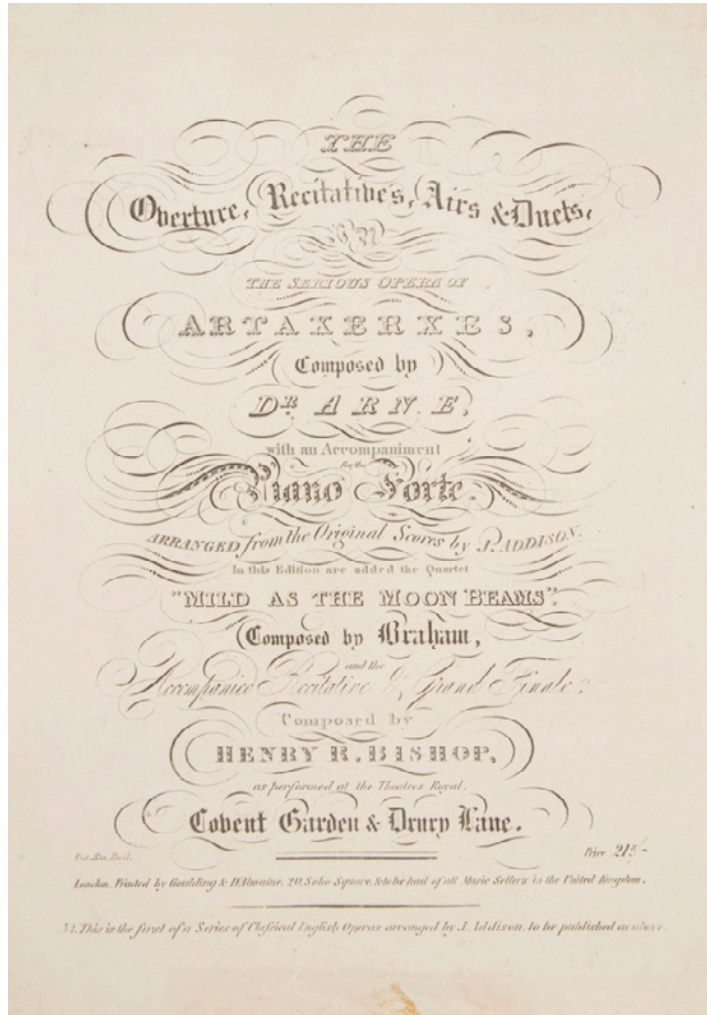 THE
Overture, Recitative's, Airs & Duets,
IN
THE SERIOUS OPERA OF
ARTAXERXES,
Composed by
DR. ARNE,
with an Accompaniment
for the
Piano Forte.
ARRANGED from the Original Scores by J. ADDISON.
In this Edition are added the Quartet
"MILD AS THE MOON BEAMS".
Composed by Braham,
and the
Accompanied Recitative & Grand Finale:
Composed by
HENRY R. BISHOP,
as performed at the Theatres Royal.
Covent Garden & Drury Lane.
Ent. Sta. Hall. Price 21s/-
London, Printed by Goulding & D'Almaine, 20, Soho Square, & to be had of all Music Sellers in the United Kingdom.
This is the first of a Series of Classical English Operas arranged by J. Addison, to be published as above.